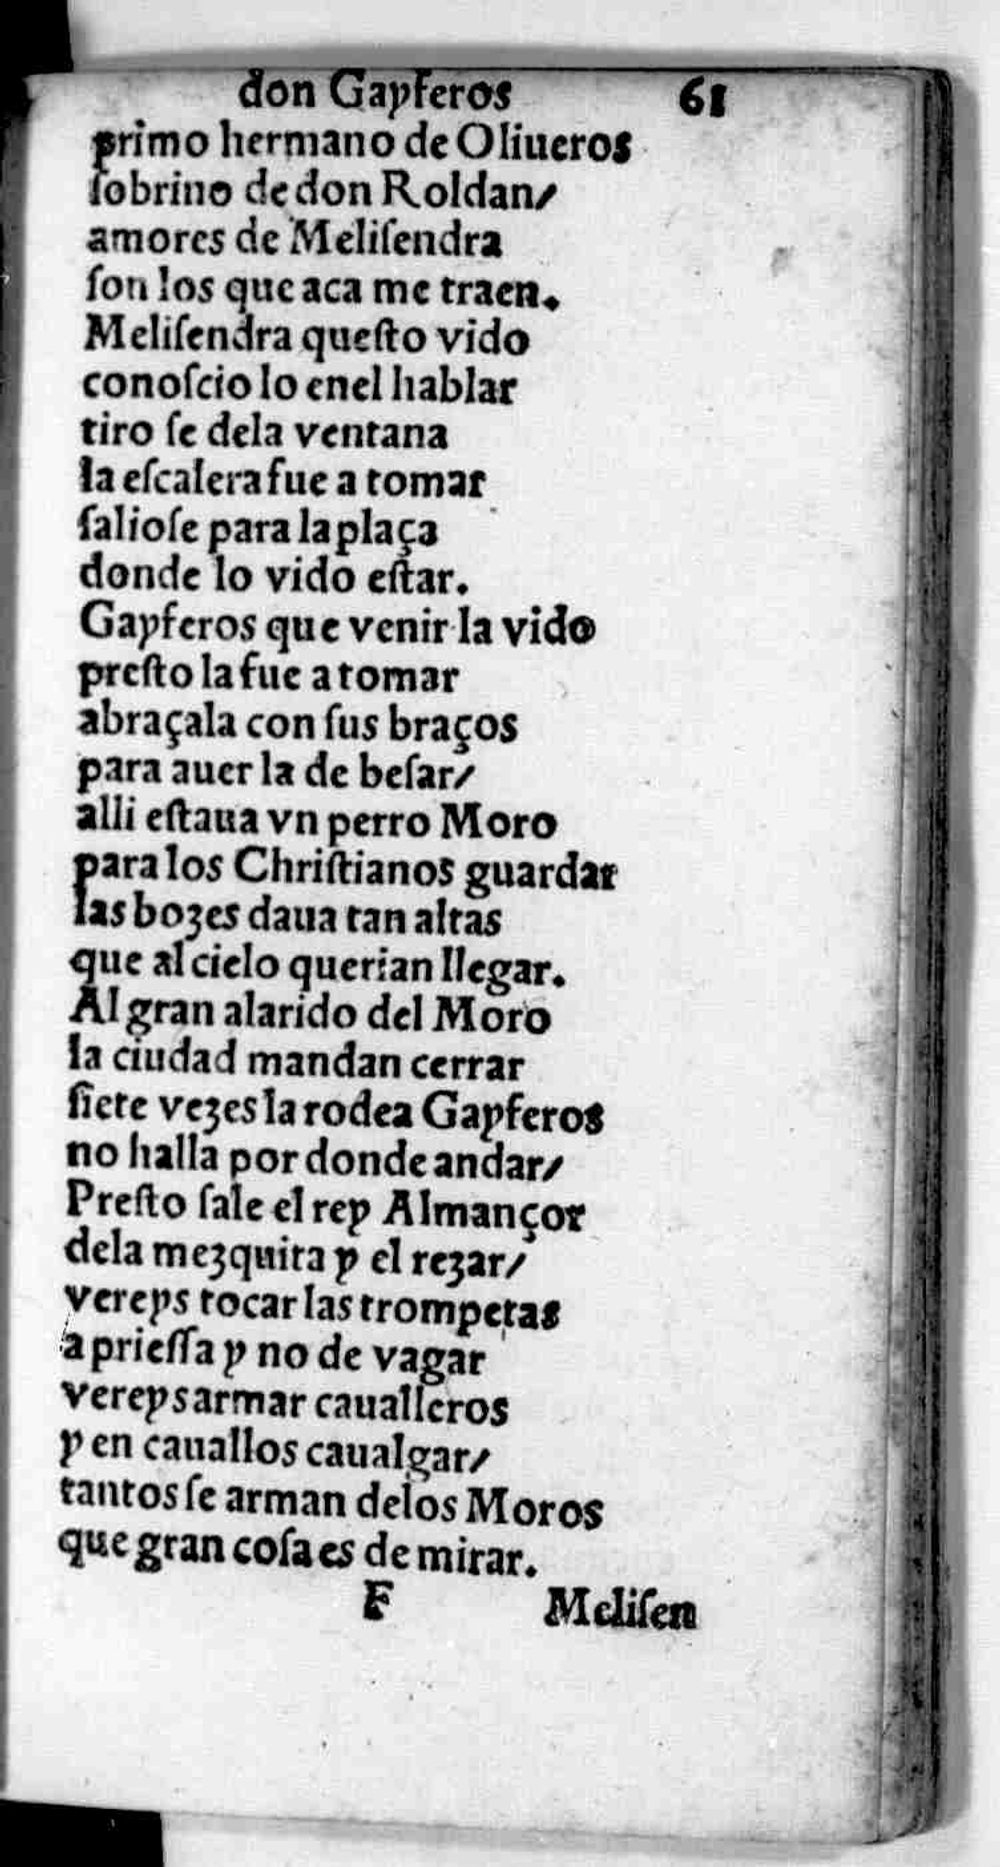 don Gayferos 61
primo hermano de Oliueros
ſobrino de don Roldan/
amores de Meliſendra
ſon los que aca me traen.
Meliſendra queſto vido
conoſcio lo enel hablar
tiro ſe dela ventana
la eſcalera fue a tomar
ſalioſe para la plaça
donde lo vido eſtar.
Gayferos que venir la vido
preſto la fue a tomar
abraçala con ſus braços
para auer la de beſar/
alli eſtaua vn perro Moro
para los Chriſtianos guardar
las bozes daua tan altas
que al cielo querian llegar.
Al gran alarido del Moro
la ciudad mandan cerrar
ſiete vezes la rodea Gayferos
no halla por donde andar/
Preſto ſale el rey Almançor
dela mezquita y el rezar/
vereys tocar las trompetas
a prieſſa y no de vagar
vereys armar caualleros
y en cauallos caualgar/
tantos ſe arman delos Moros
que gran coſa es de mirar.
F Meliſen